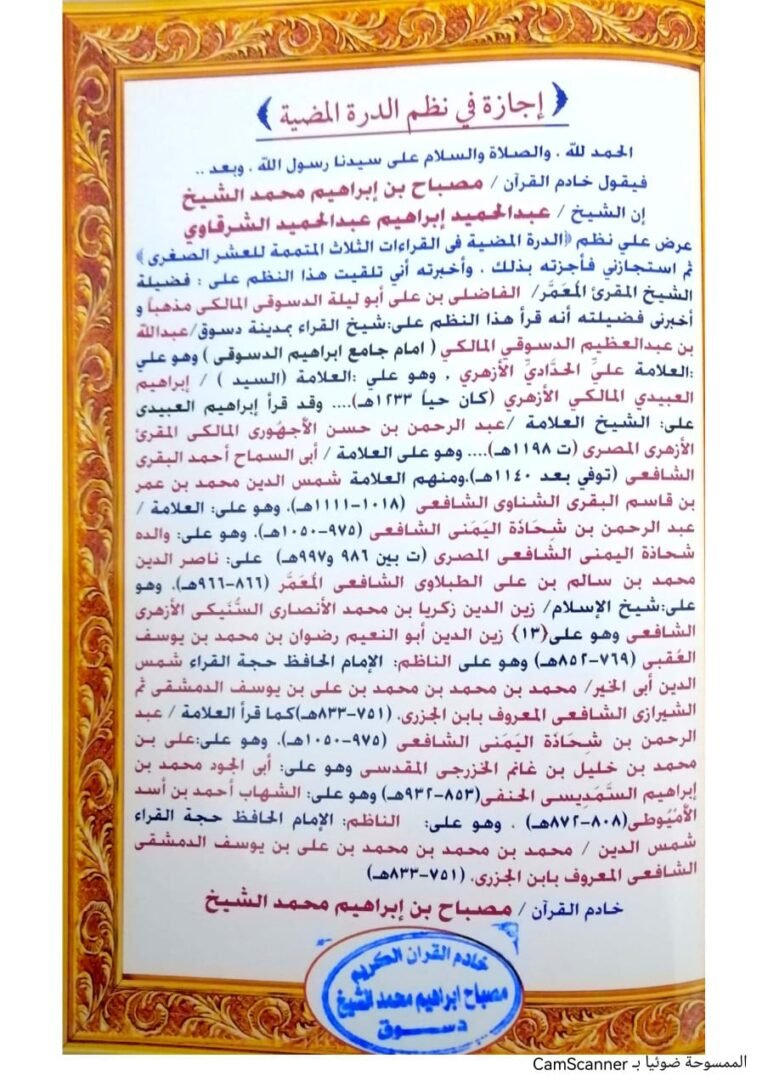 ﴿ إجازة في نظم الدرة المضية ﴾
الحمد لله . والصلاة والسلام على سيدنا رسول الله . وبعد ..
فيقول خادم القرآن / مصباح بن إبراهيم محمد الشيخ
إن الشيخ / عبدالحميد إبراهيم عبدالحميد الشرقاوي
عرض علي نظم ﴿الدرة المضية فى القراءات الثلاث المتممة للعشر الصغرى﴾
ثم استجازني فأجزته بذلك . وأخبرته أني تلقيت هذا النظم على : فضيلة
الشيخ المقرئ المُعَمَّر/ الفاضلى بن على أبو ليلة الدسوقى المالكى مذهباً و
أخبرنى فضيلته أنه قرأ هذا النظم على:شيخ القراء بمدينة دسوق/عبدالله
بن عبدالعظيم الدسوقي المالكي ( امام جامع ابراهيم الدسوقى ) وهو علي
:العلامة عليِّ الحدَّاديِّ الأزهري , وهو علي :العلامة (السيد ) / إبراهيم
العبيدي المالكي الأزهري (كان حياً ١٢٣٣هـ).... وقد قرأ إبراهيم العبيدى
على: الشيخ العلامة /عبد الرحمن بن حسن الأجهُورى المالكى المقرئ
الأزهرى المصرى (ت ١١٩٨هـ).... وهو على العلامة / أبى السماح أحمد البقرى
الشافعى (توفي بعد ١١٤٠هـ).ومنهم العلامة شمس الدين محمد بن عمر
بن قاسم البقرى الشناوى الشافعى (١٠١٨-١١١١هـ). وهو على: العلامة /
عبد الرحمن بن شِحَاذَة اليَمَنى الشافعى (٩٧٥-١٠٥٠هـ). وهو على: والده
شحاذة اليمنى الشافعى المصرى (ت بين ٩٨٦ و٩٩٧هـ) على: ناصر الدين
محمد بن سالم بن على الطبلاوى الشافعى المُعَمَّر (٨٦٦-٩٦٦هـ). وهو
على:شيخ الإسلام/ زين الدين زكريا بن محمد الأنصارى السُّنَيكى الأزهرى
الشافعى وهو على{١٣} زين الدين أبو النعيم رضوان بن محمد بن يوسف
العُقبى (٧٦٩-٨٥٢هـ) وهو على الناظم: الإمام الحافظ حجة القراء شمس
الدين أبى الخير/ محمد بن محمد بن محمد بن على بن يوسف الدمشقى ثم
الشيرازى الشافعى المعروف بابن الجزرى. (٧٥١-٨٣٣هـ)كما قرأ العلامة / عبد
الرحمن بن شِحَاذَة اليَمَنى الشافعى (٩٧٥-١٠٥٠هـ). وهو على:على بن
محمد بن خليل بن غانم الخزرجى المقدسى وهو على: أبى الجود محمد بن
إبراهيم السَّمَدِيسى الحنفى(٨٥٣-٩٣٢هـ) وهو على: الشهاب أحمد بن أسد
الأمْيُوطى(٨٠٨-٨٧٢هـ) . وهو على: الناظم: الإمام الحافظ حجة القراء
شمس الدين / محمد بن محمد بن محمد بن على بن يوسف الدمشقى
الشافعى المعروف بابن الجزرى. (٧٥١-٨٣٣هـ)
خادم القرآن / مصباح بن إبراهيم محمد الشيخ
خادم القران الكريم
مصباح ابراهيم محمد الشيخ
دسوق
الممسوحة ضوئيا بـ CamScanner